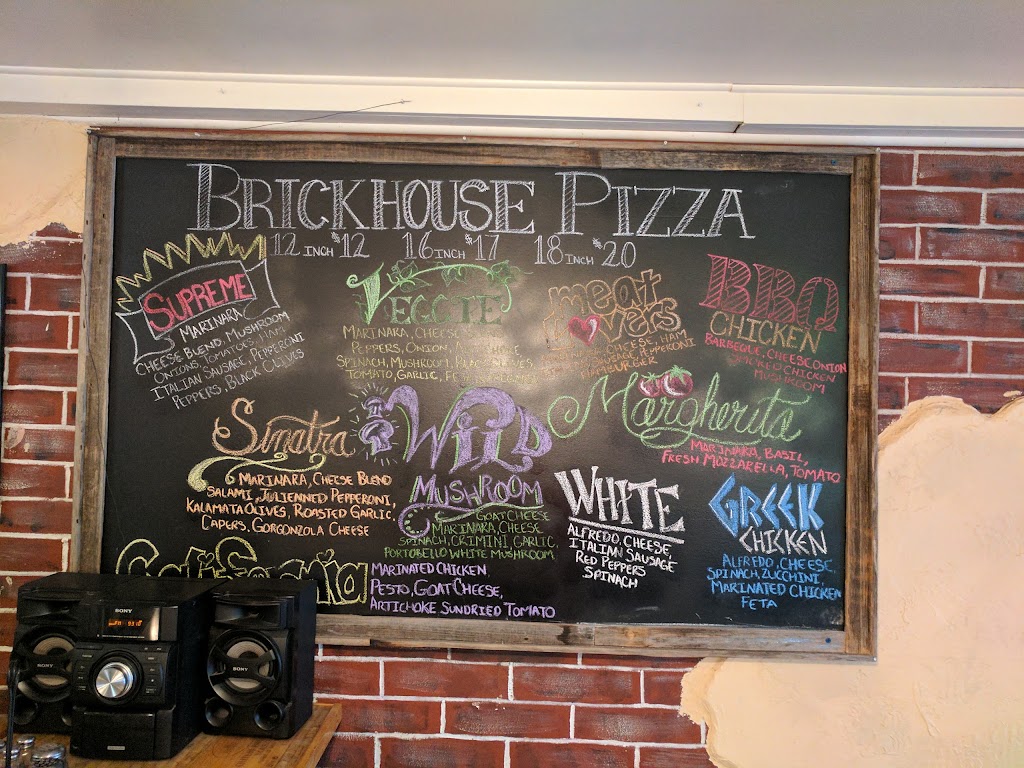 BRICKHOUSE PIZZA
12 INCH $12 16 INCH $17 18 INCH $20
SUPREME
MARINARA
CHEESE BLEND, MUSHROOM
ONIONS, TOMATOES, HAM
ITALIAN SAUSAGE, PEPPERONI
PEPPERS, BLACK OLIVES
VEGGIE
MARINARA, CHEESE
PEPPERS, ONION,
SPINACH, MUSHROOM,
TOMATO, GARLIC,
meat lovers
CHEESE, HAM
SAUSAGE, PEPPERONI
HAMBURGER
BBQ
CHICKEN
BARBEQUE, CHEESE, ONION
SMOKED CHICKEN
MUSHROOM
Sinatra
MARINARA, CHEESE BLEND
SALAMI, JULIENNED PEPPERONI,
KALAMATA OLIVES, ROASTED GARLIC,
CAPERS, GORGONZOLA CHEESE
WILD
MUSHROOM
GOAT CHEESE
MARINARA, CHEESE
SPINACH, CRIMINI, GARLIC,
PORTOBELLO WHITE MUSHROOM
Margherita
MARINARA, BASIL,
FRESH MOZZARELLA, TOMATO
WHITE
ALFREDO, CHEESE,
ITALIAN SAUSAGE
RED PEPPERS
SPINACH
GREEK
CHICKEN
ALFREDO, CHEESE,
SPINACH, ZUCCHINI,
MARINATED CHICKEN
FETA
California
MARINATED CHICKEN,
PESTO, GOAT CHEESE,
ARTICHOKE, SUNDRIED TOMATO
SONY
SONY
SONY